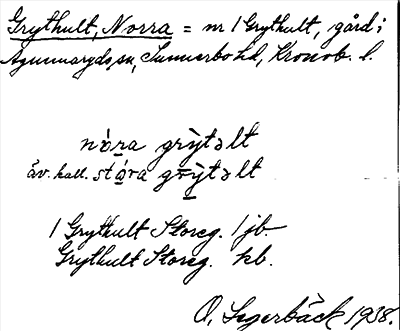 Grythult, Norra = nr 1 Grythult, gård i
Agunnaryds sn, Sunnerbo hd, Kronob. l.
nòra grỳtəlt
äv. kall. stóra grỳtəlt
1 Grythult Storeg. 1 jb.
Grythult Storeg. kb.
O. Segerbäck 1938.